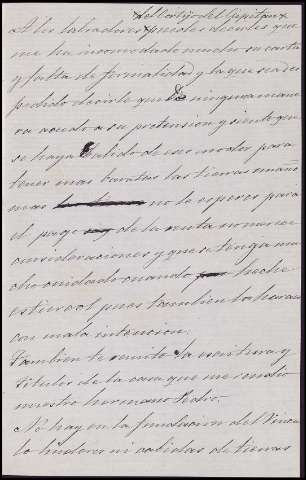 del Cortijo del Capitan x
A los labradores x puedes decirles que
me ha incomodado mucho su carta
y falta de formalidad y la que seades
pedido decirle que de ninguna mane
ra acudo a su pretension y siento que
se haya balido de esos modos para
tener mas baratas las tierras
mas no le espero para
el pago de la renta no
consideraciones y que se tenga mu
cho cuidado cuando heche
estiercol pues tambien lo haran
con mala intencion.
Tambien te remito la escritura y
titulos de la casa que me vendio
nuestro hermano Pedro.
No hay en la fundacion del Vincu
lo linderos ni cabidas de tierras